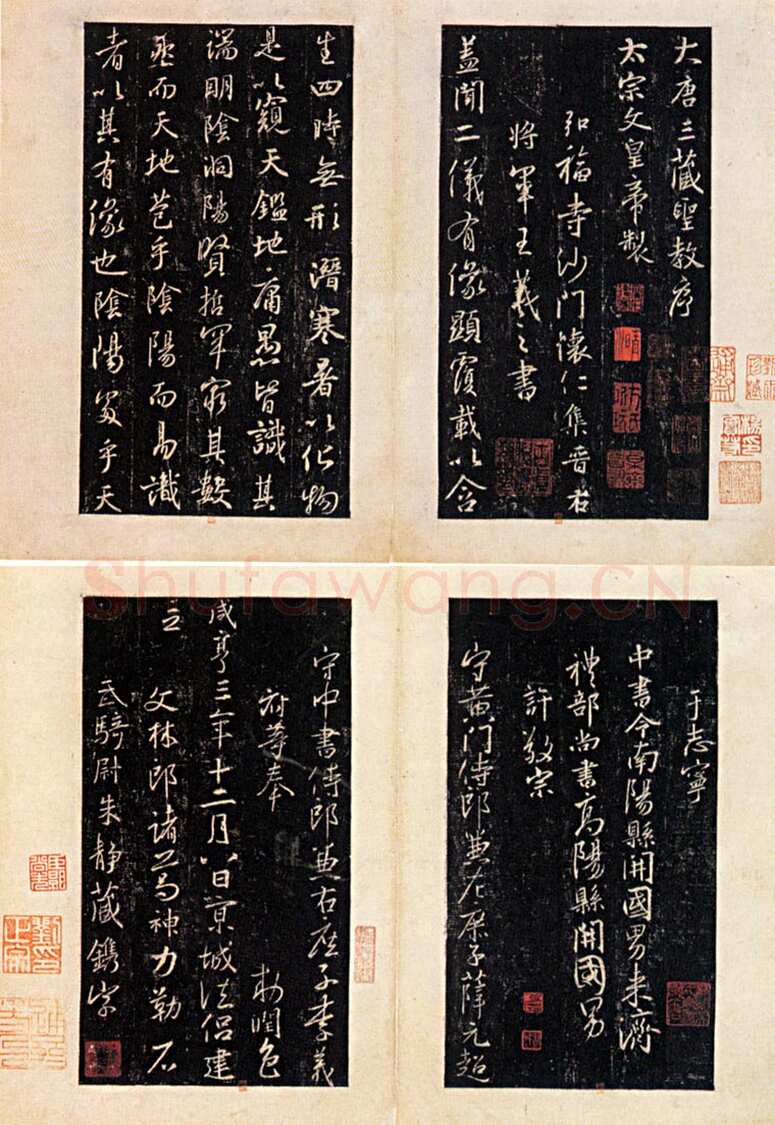 大唐三藏聖教序
太宗文皇帝製
弘福寺沙門懷仁集晉右
將軍王羲之書
蓋聞二儀有像顯覆載以含
生四時無形潛寒暑以化物
是以窺天鑑地庸愚皆識其
端明陰洞陽賢哲罕窮其數
然而天地苞乎陰陽而易識
者以其有像也陰陽處乎天
Shufawang.CN
于志寧
中書令南陽縣開國男來濟
禮部尚書高陽縣開國男
許敬宗
守黃門侍郎兼左庶子薛元超
守中書侍郎兼右庶子李義
府等奉 勅潤色
咸亨三年十二月八日京城法侶建
立
文林郎諸葛神力勒石
武騎尉朱靜藏鐫字